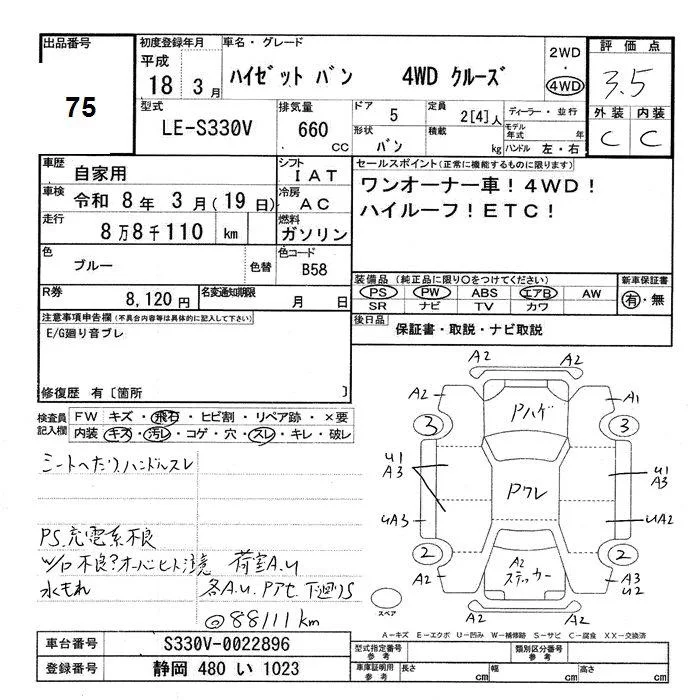 出品番号
75
初度登録年月
平成
18 3 月
車名・グレード
ハイゼット バン 4WD クルーズ
2WD
・
4WD
評価点
3.5
外装 内装
C C
型式
LE-S330V
排気量
660 CC
ドア 5
形状 バン
定員 2[4]人
積載 kg
ディーラー・並行
モデル年式 年
ハンドル 左・右
車歴
自家用
シフト
IAT
車検
令和 8 年 3 月(19 日)
冷房
AC
走行
8万8千110 km
燃料
ガソリン
色
ブルー
色替
色コード
B58
R券 8,120 円
名変通知期限 月 日
セールスポイント(正常に機能するものに限ります)
ワンオーナー車!4WD!
ハイルーフ!ETC!
装備品(純正品に限り○をつけてください)
PS PW ABS エアB AW
SR ナビ TV カワ
新車保証書
有・無
後日品 保証書・取説・ナビ取説
注意事項申告欄(不具合内容等は具体的に記入して下さい)
E/G廻り音ブレ
修復歴 有[箇所 ]
検査員
記入欄
FW キズ・飛石・ヒビ割・リペア跡・×要
内装 キズ・汚レ・コゲ・穴・スレ・キレ・破レ
シートへたり ハンドルスレ
PS.充電系不良
W/D不良?オーバーヒート注意 荷室A.U
水もれ 各A.U.Pアセ 下廻りS
@88111km
A2 A2
A2 A1
Pハゲ
3 3
U1
A3
U1
A3
Pワレ
UA3 UA2
2 2
A2
ステッカー
A2 A3
U2
A2 A2
スペア
A-キズ E-エクボ U-凹み W-補修跡 S-サビ C-腐食 XX-交換済
車台番号 S330V-0022896
登録番号 静岡 480 い 1023
型式指定番号
参考
類別区分番号
参考
車庫証明用
参考
長さ cm 幅 cm 高さ cm